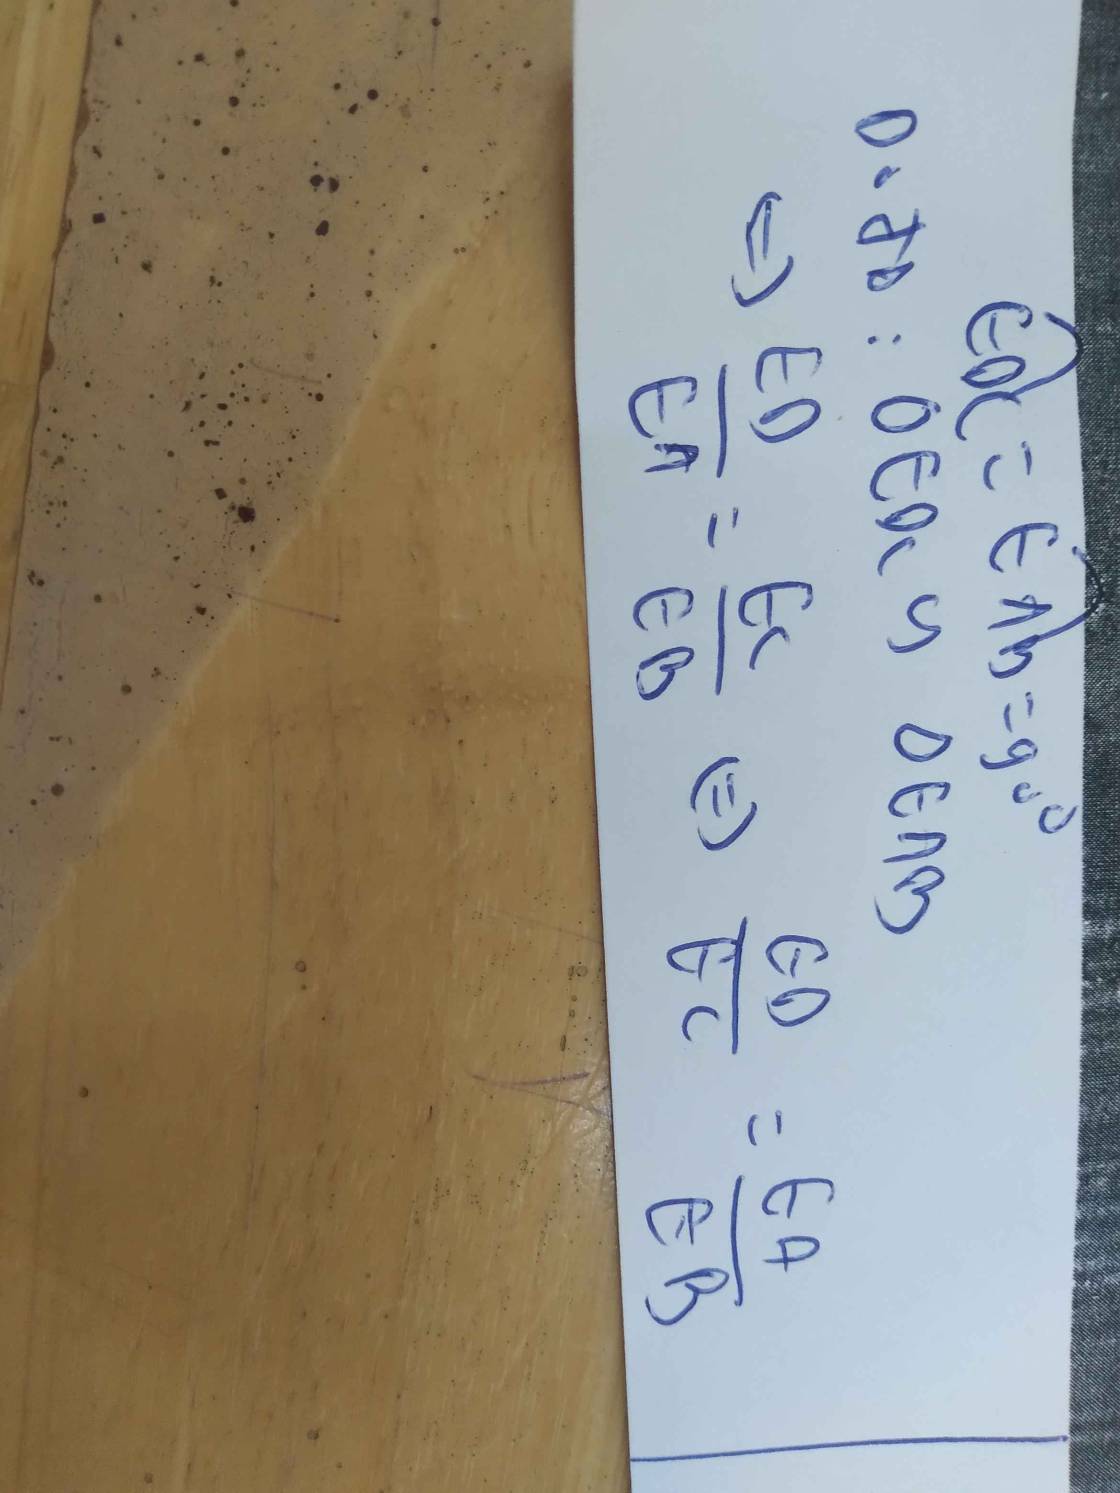 EDC = EAB = 90°
: DEDC ∽ DEAB
⇒ ED/EA = EC/EB ⇒ ED/EC = EA/EB